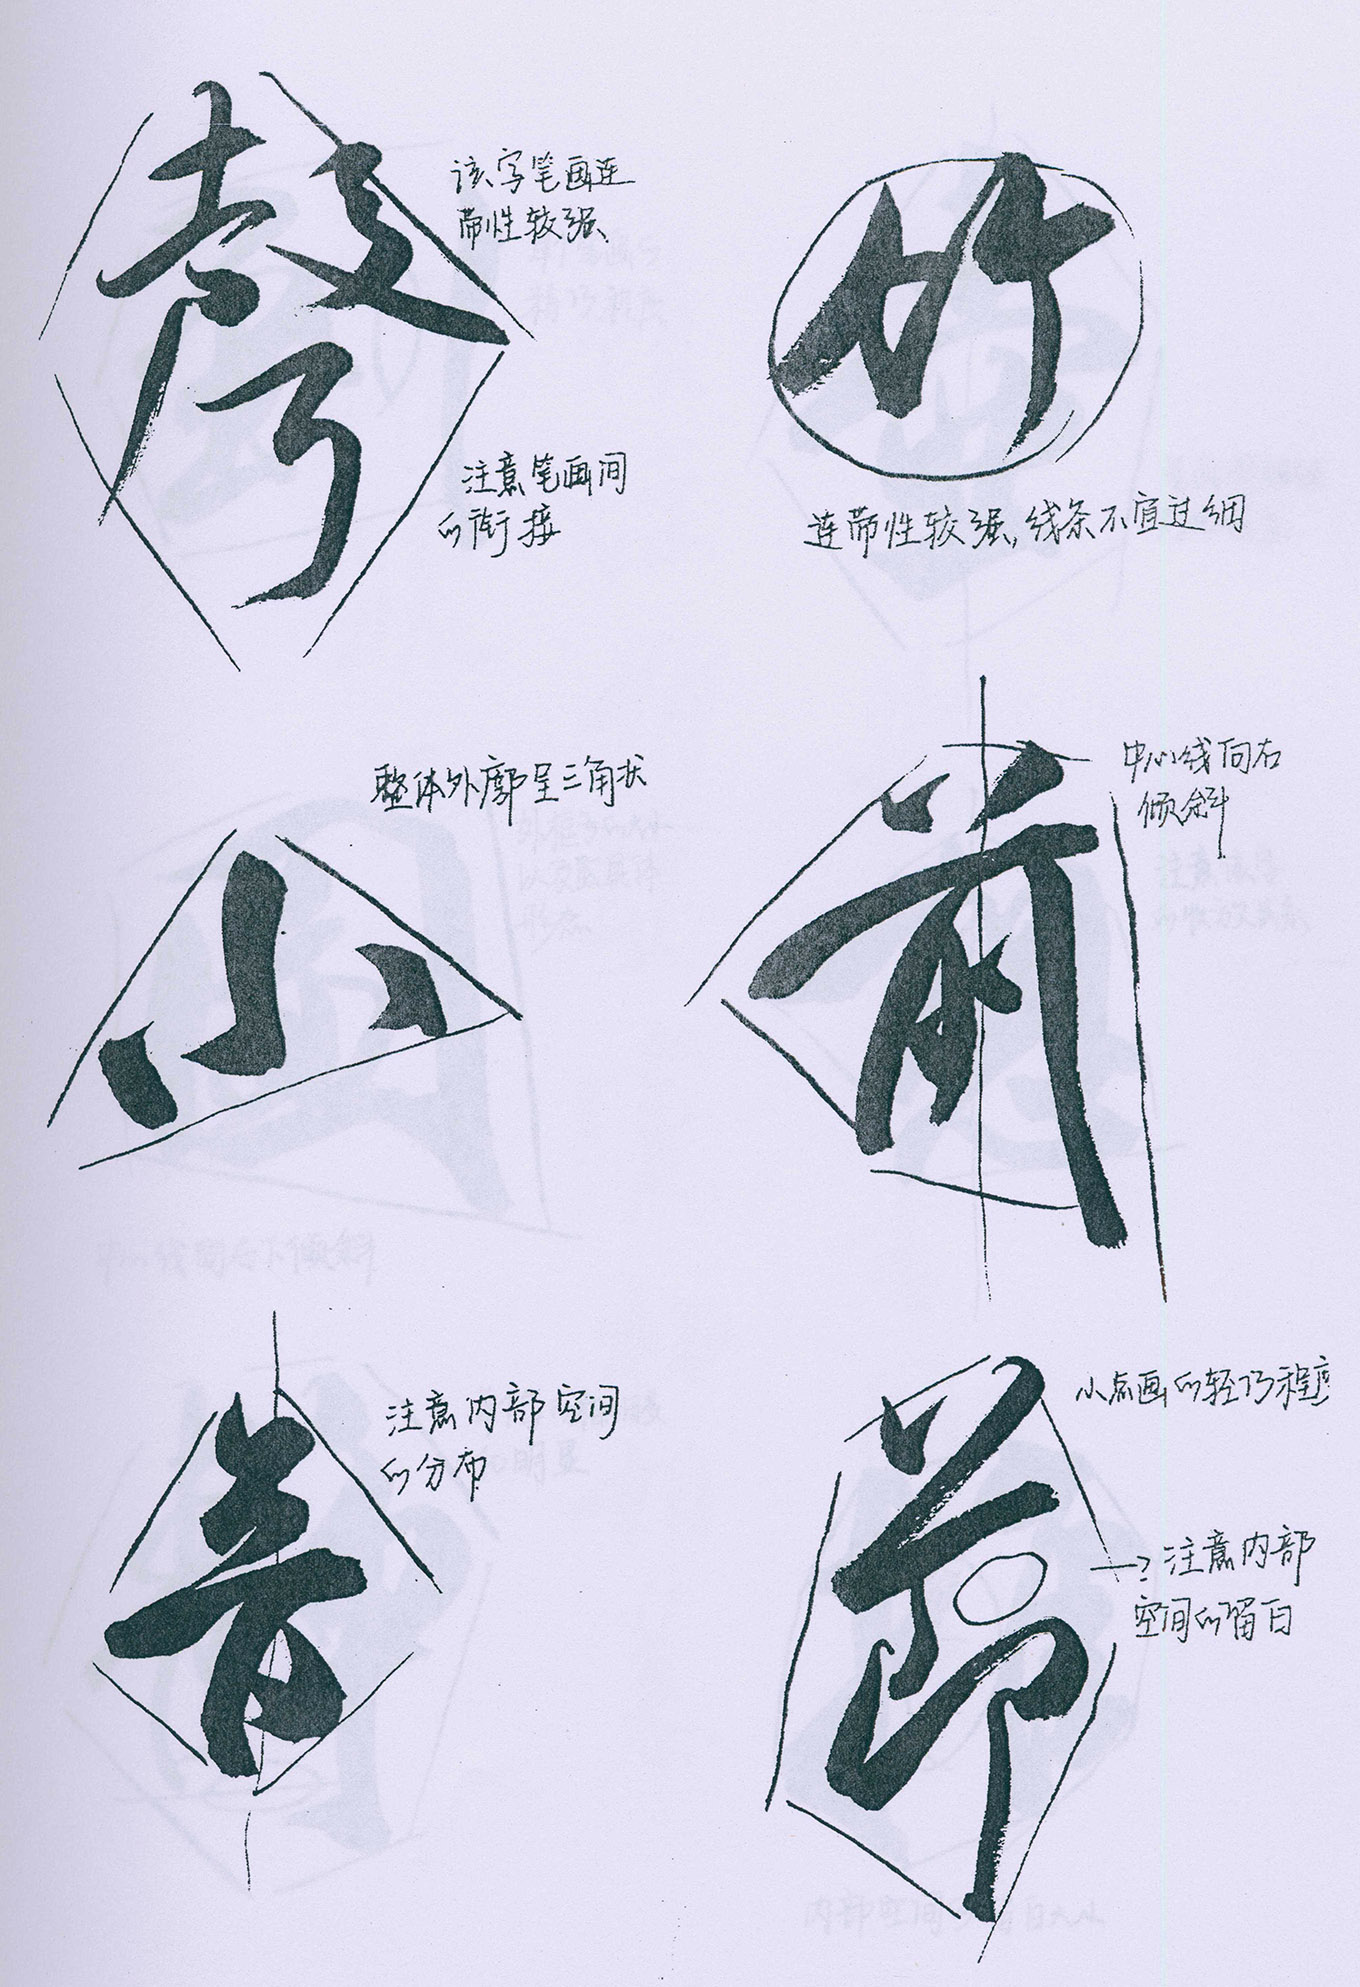 该字笔画连
带性较强
注意笔画间
的衔接
竹
连带性较强,线条不宜过细
整体外廓呈三角状
小
中心线向右
倾斜
注意内部空间
的分布
小点画的轻巧程度
节
注意内部
空间的留白